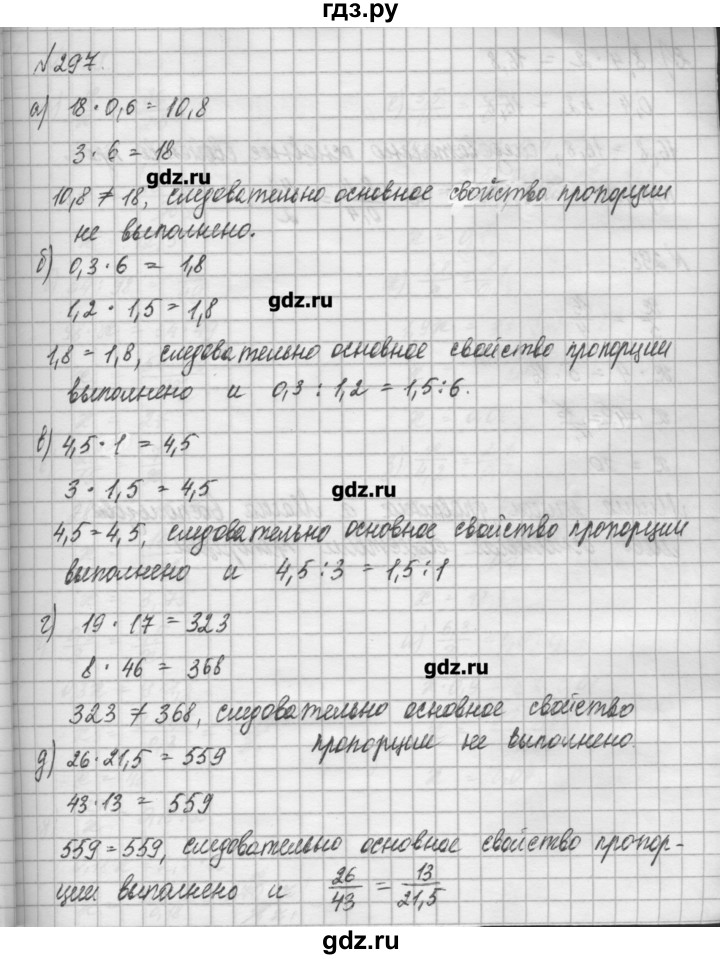 гдз.ру
№297.
а) 18 · 0,6 = 10,8
3 · 6 = 18
gdz.ru
10,8 ≠ 18, следовательно основное свойство пропорции
не выполнено.
б) 0,3 · 6 = 1,8
gdz.ru
1,2 · 1,5 = 1,8
1,8 = 1,8, следовательно основное свойство пропорции
выполнено и 0,3 : 1,2 = 1,5 : 6.
в) 4,5 · 1 = 4,5
3 · 1,5 = 4,5
gdz.ru
4,5 = 4,5, следовательно основное свойство пропорции
выполнено и 4,5 : 3 = 1,5 : 1
г) 19 · 17 = 323
8 · 46 = 368
gdz.ru
323 ≠ 368, следовательно основное свойство
пропорции не выполнено.
д) 26 · 21,5 = 559
43 · 13 = 559
559 = 559, следовательно основное свойство пропор-
ции выполнено и 26/43 = 13/21,5
gdz.ru